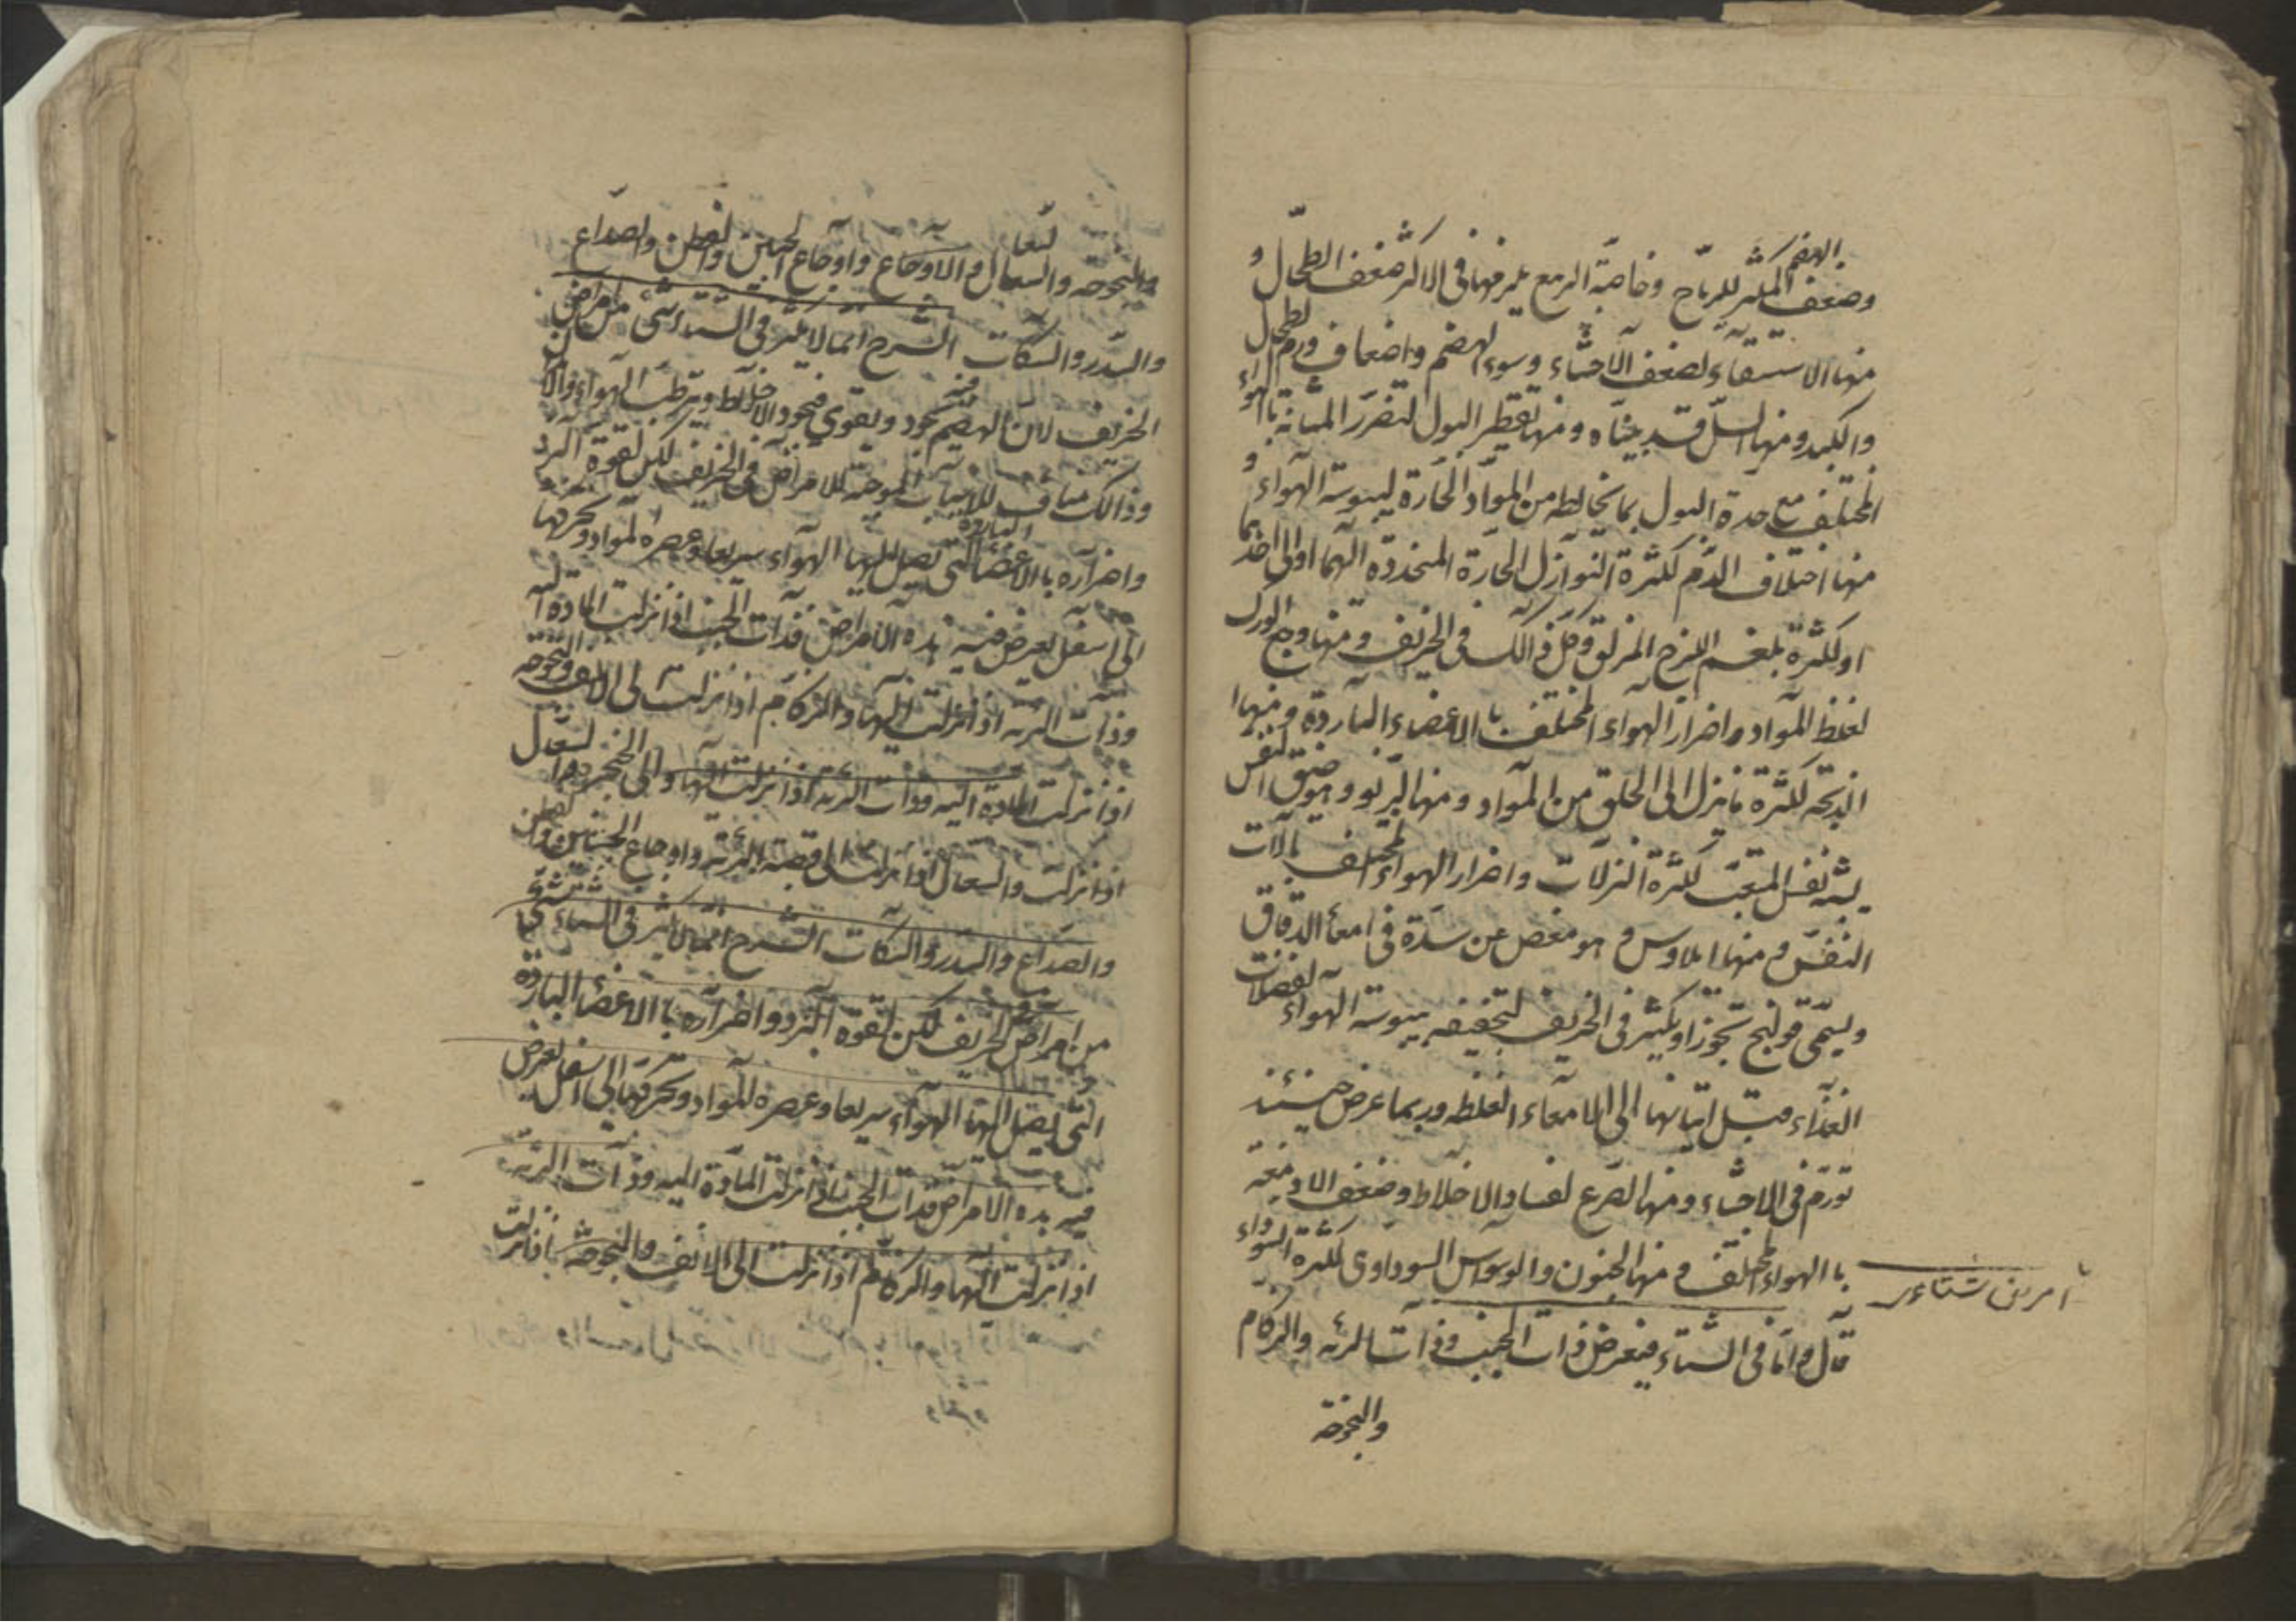 وضعف الهضم المكثر للرياح وخاصة الربع يلزمها في الاكثر ضعف الطحال و
منها الاستسقاء لضعف الاحشاء وسوء الهضم واضعاف ورم الطحال
والكبد ومنها السل قد بيناه ومنها تقطير البول لتضرر المثانة باالهواء
المختلف مع حدة البول بما يخالطه من المواد الحارة ليبوسة الهواء و
منها اختلاف الدم لكثرة النوازل الحارة المنحدرة اليهما او الى احدهما
او لكثرة بلغم اللزج المزلق وكل ذالك في الخريف ومنها وجع الورك
لغلظ المواد واضرار الهواء المختلف باالاعضاء الباردة ومنها ا
الذبحة لكثرة ما ينزل الى الحلق من المواد ومنها الربو وهو ضيق النفس
يشبه نفس المتعب لكثرة النزلات واضرار الهواء المختلف بالات
النفس ومنها ايلاوس و هو مغص عن سدة في امعاء الدقاق
ويسمى قولنج تجوزا ويكثر في الخريف لتجفيفه بيبوسة الهواء لفضلات
الغذاء قبل اتيانها الى الامعاء الغلظه وربما عرض حينئذ
تورم في الاحشاء ومنها الصرع لفساد الاخلاط وضعف الادمغة
باالهواء المختلف ومنها الجنون والوسواس السوداوى لكثرة السوداء
امراض شتاء
قال واما في الشتاء فيعرض ذات الجنب وذات الرئه والزكام
والبحوحة
والبحوحه والسعال و الاوجاع واوجاع الجنبين والقطن والصداع
والسدر والسكات الشرح انما لا يكثر في الشتاء شئ من امراض
الخريف لان الهضم فيه يجود ويقوي فتجود الاخلاط ويترطب الهواء
وذالك مناف للاسباب الموجبة للامراض في الخريف لكن لقوة البرد
واضراره باالاعضاء الباردة التي يصل اليها الهواء سريعا وعصره المواد وتحركها
الى اسفل يعرض فيه هذه الامراض فذات الجنب اذا نزلت المادة اليه
وذات الرئه اذا نزلت اليها والزكام اذا نزلت الى الانف والبحوحه
اذا نزلت المادة اليه وذات الرئة اذا نزلت اليها والى الحنجرة
اذا نزلت والسعال اذا نزلت الى قصبة الرئة واوجاع الجنبين والقطن
والصداع والسدر والسكات الشرح انما لا يكثر في الشتاء شئ
من امراض الخريف لكن لقوة البرد واضراره باالاعضاء الباردة
التي يصل اليها الهواء سريعا وعصره المواد وتحركها الى اسفل يعرض
فيه هذه الامراض فذات الجنب اذا نزلت المادة اليه وذات الرئه
اذا نزلت اليها والزكام اذا نزلت الى الانف والبحوحة اذا نزلت